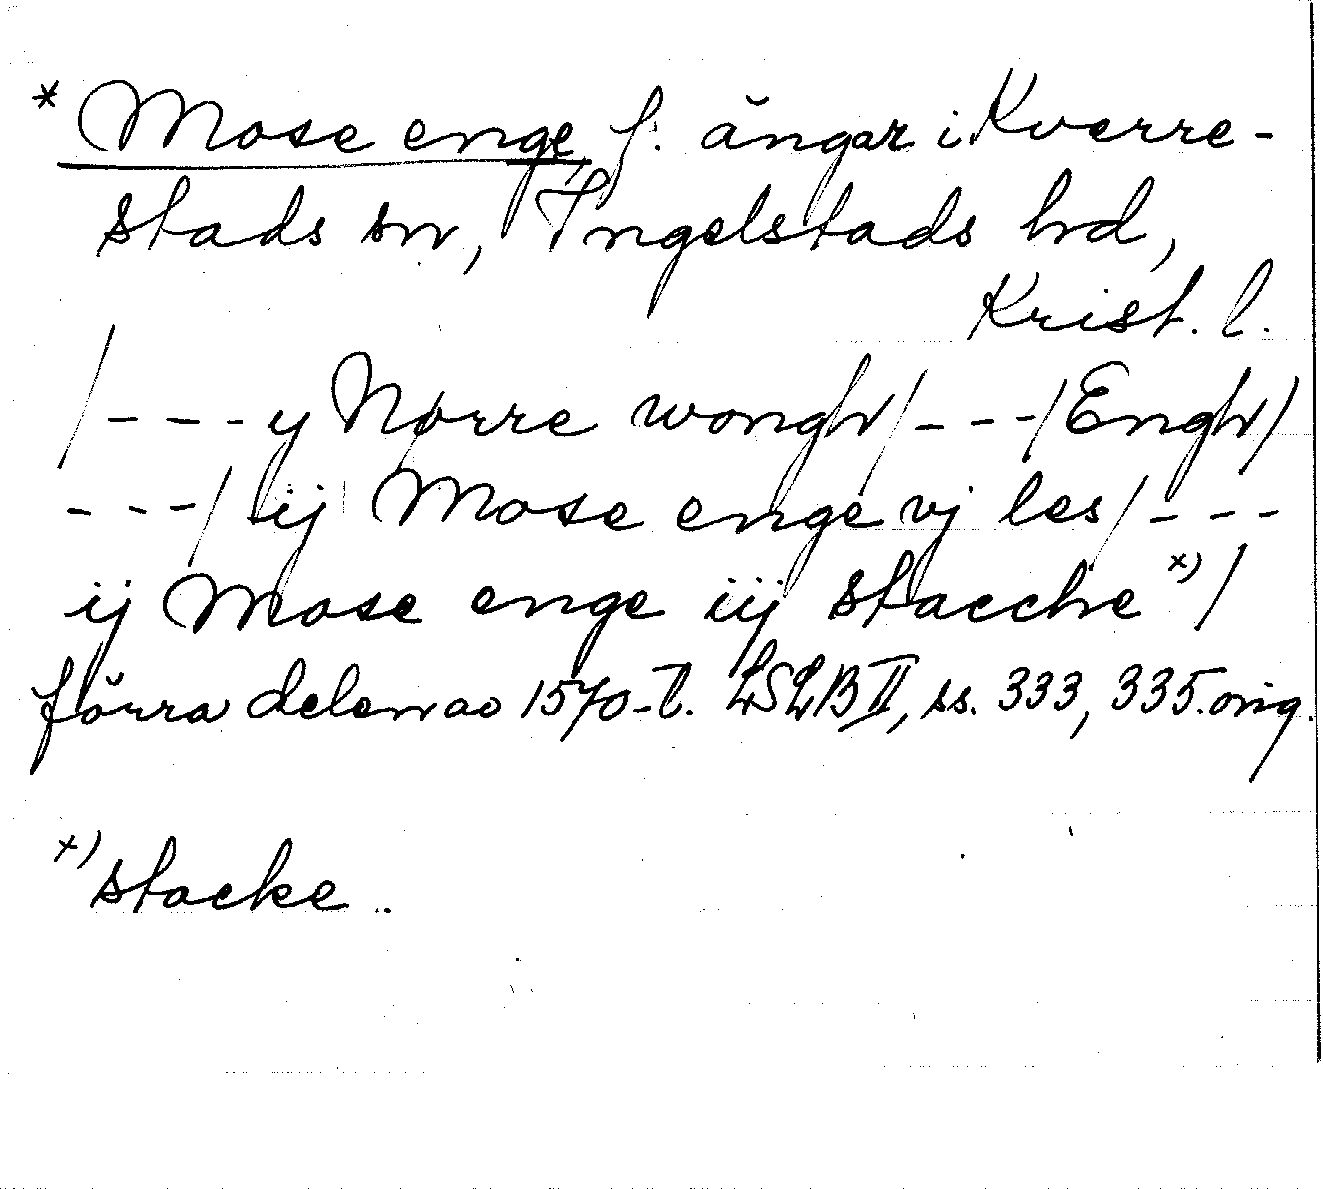 * Mose enge f. ängar i Kverre-
stads sn, Ingelstads hd,
Krist. l.
/---y Nørre wongh/---/Engh/
---/ ij Mose enge vj les/---
ij Mose enge iij stacche x)/
förra delen av 1570-t. LSLB II, ss. 333, 335. orig.
x) stacke.